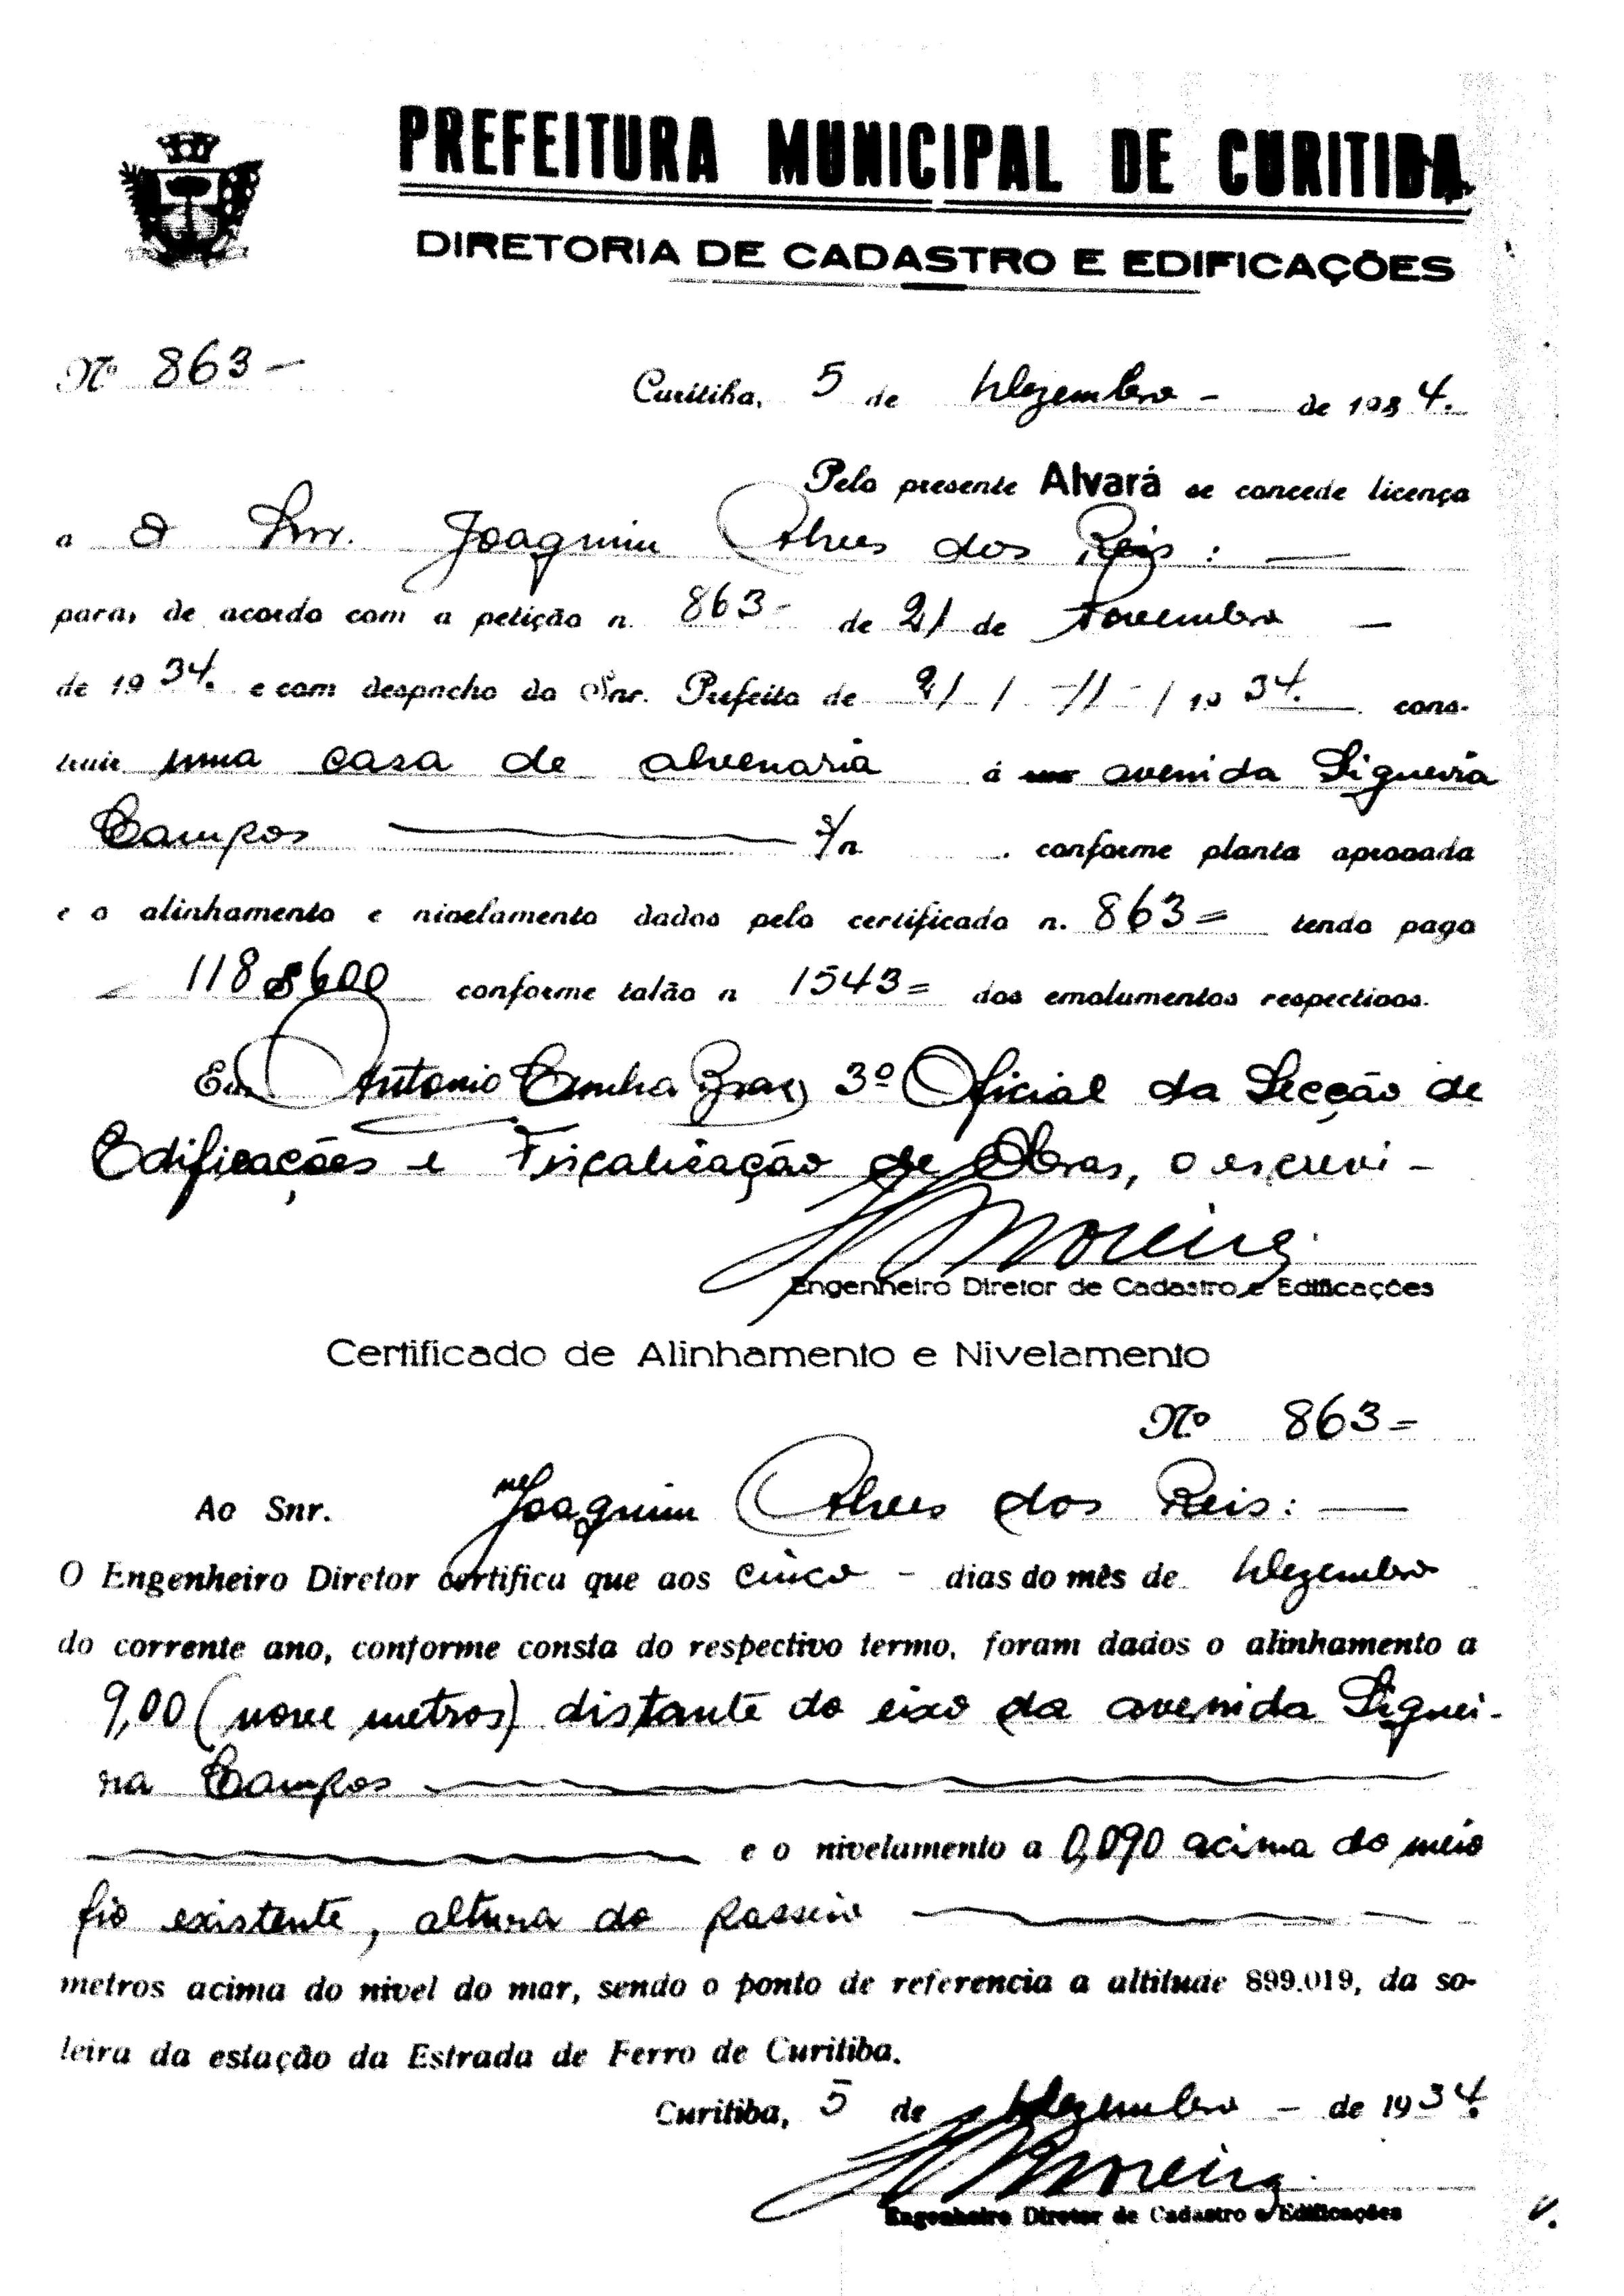 PREFEITURA MUNICIPAL DE CURITIBA
DIRETORIA DE CADASTRO E EDIFICAÇÕES
Nº 863-
Curitiba, 5 de Dezembro - de 1934.
Pelo presente Alvará se concede licença
a o Snr. Joaquim Alves dos Reis: —
para, de acordo com a petição n. 863- de 21 de Novembro —
de 1934. e com despacho do Snr. Prefeito de 21 / -11- / 1934. cons-
truir uma casa de alvenaria á avenida Siqueira
Campos — s/n . conforme planta aprovada
e o alinhamento e nivelamento dados pelo certificado n. 863= tendo pago
= 118$600 conforme talão n 1543= dos emolumentos respectivos.
Eu Antonio Cunha Braz 3º Oficial da Secção de
Edificações e Fiscalização de Obras, o escrevi -
Moreira
Engenheiro Diretor de Cadastro e Edificações
Certificado de Alinhamento e Nivelamento
Nº 863=
Ao Snr. Joaquim Alves dos Reis: —
O Engenheiro Diretor certifica que aos cinco - dias do mês de Dezembro
do corrente ano, conforme consta do respectivo termo, foram dados o alinhamento a
9,00 (nove metros) distante do eixo da avenida Siquei-
ra Campos —
— e o nivelamento a 0,090 acima do meio
fio existente, altura do passeio —
metros acima do nivel do mar, sendo o ponto de referencia a altitude 899.019, da so-
leira da estação da Estrada de Ferro de Curitiba.
Curitiba, 5 de Dezembro - de 1934.
Moreira
Engenheiro Diretor de Cadastro e Edificações
V.